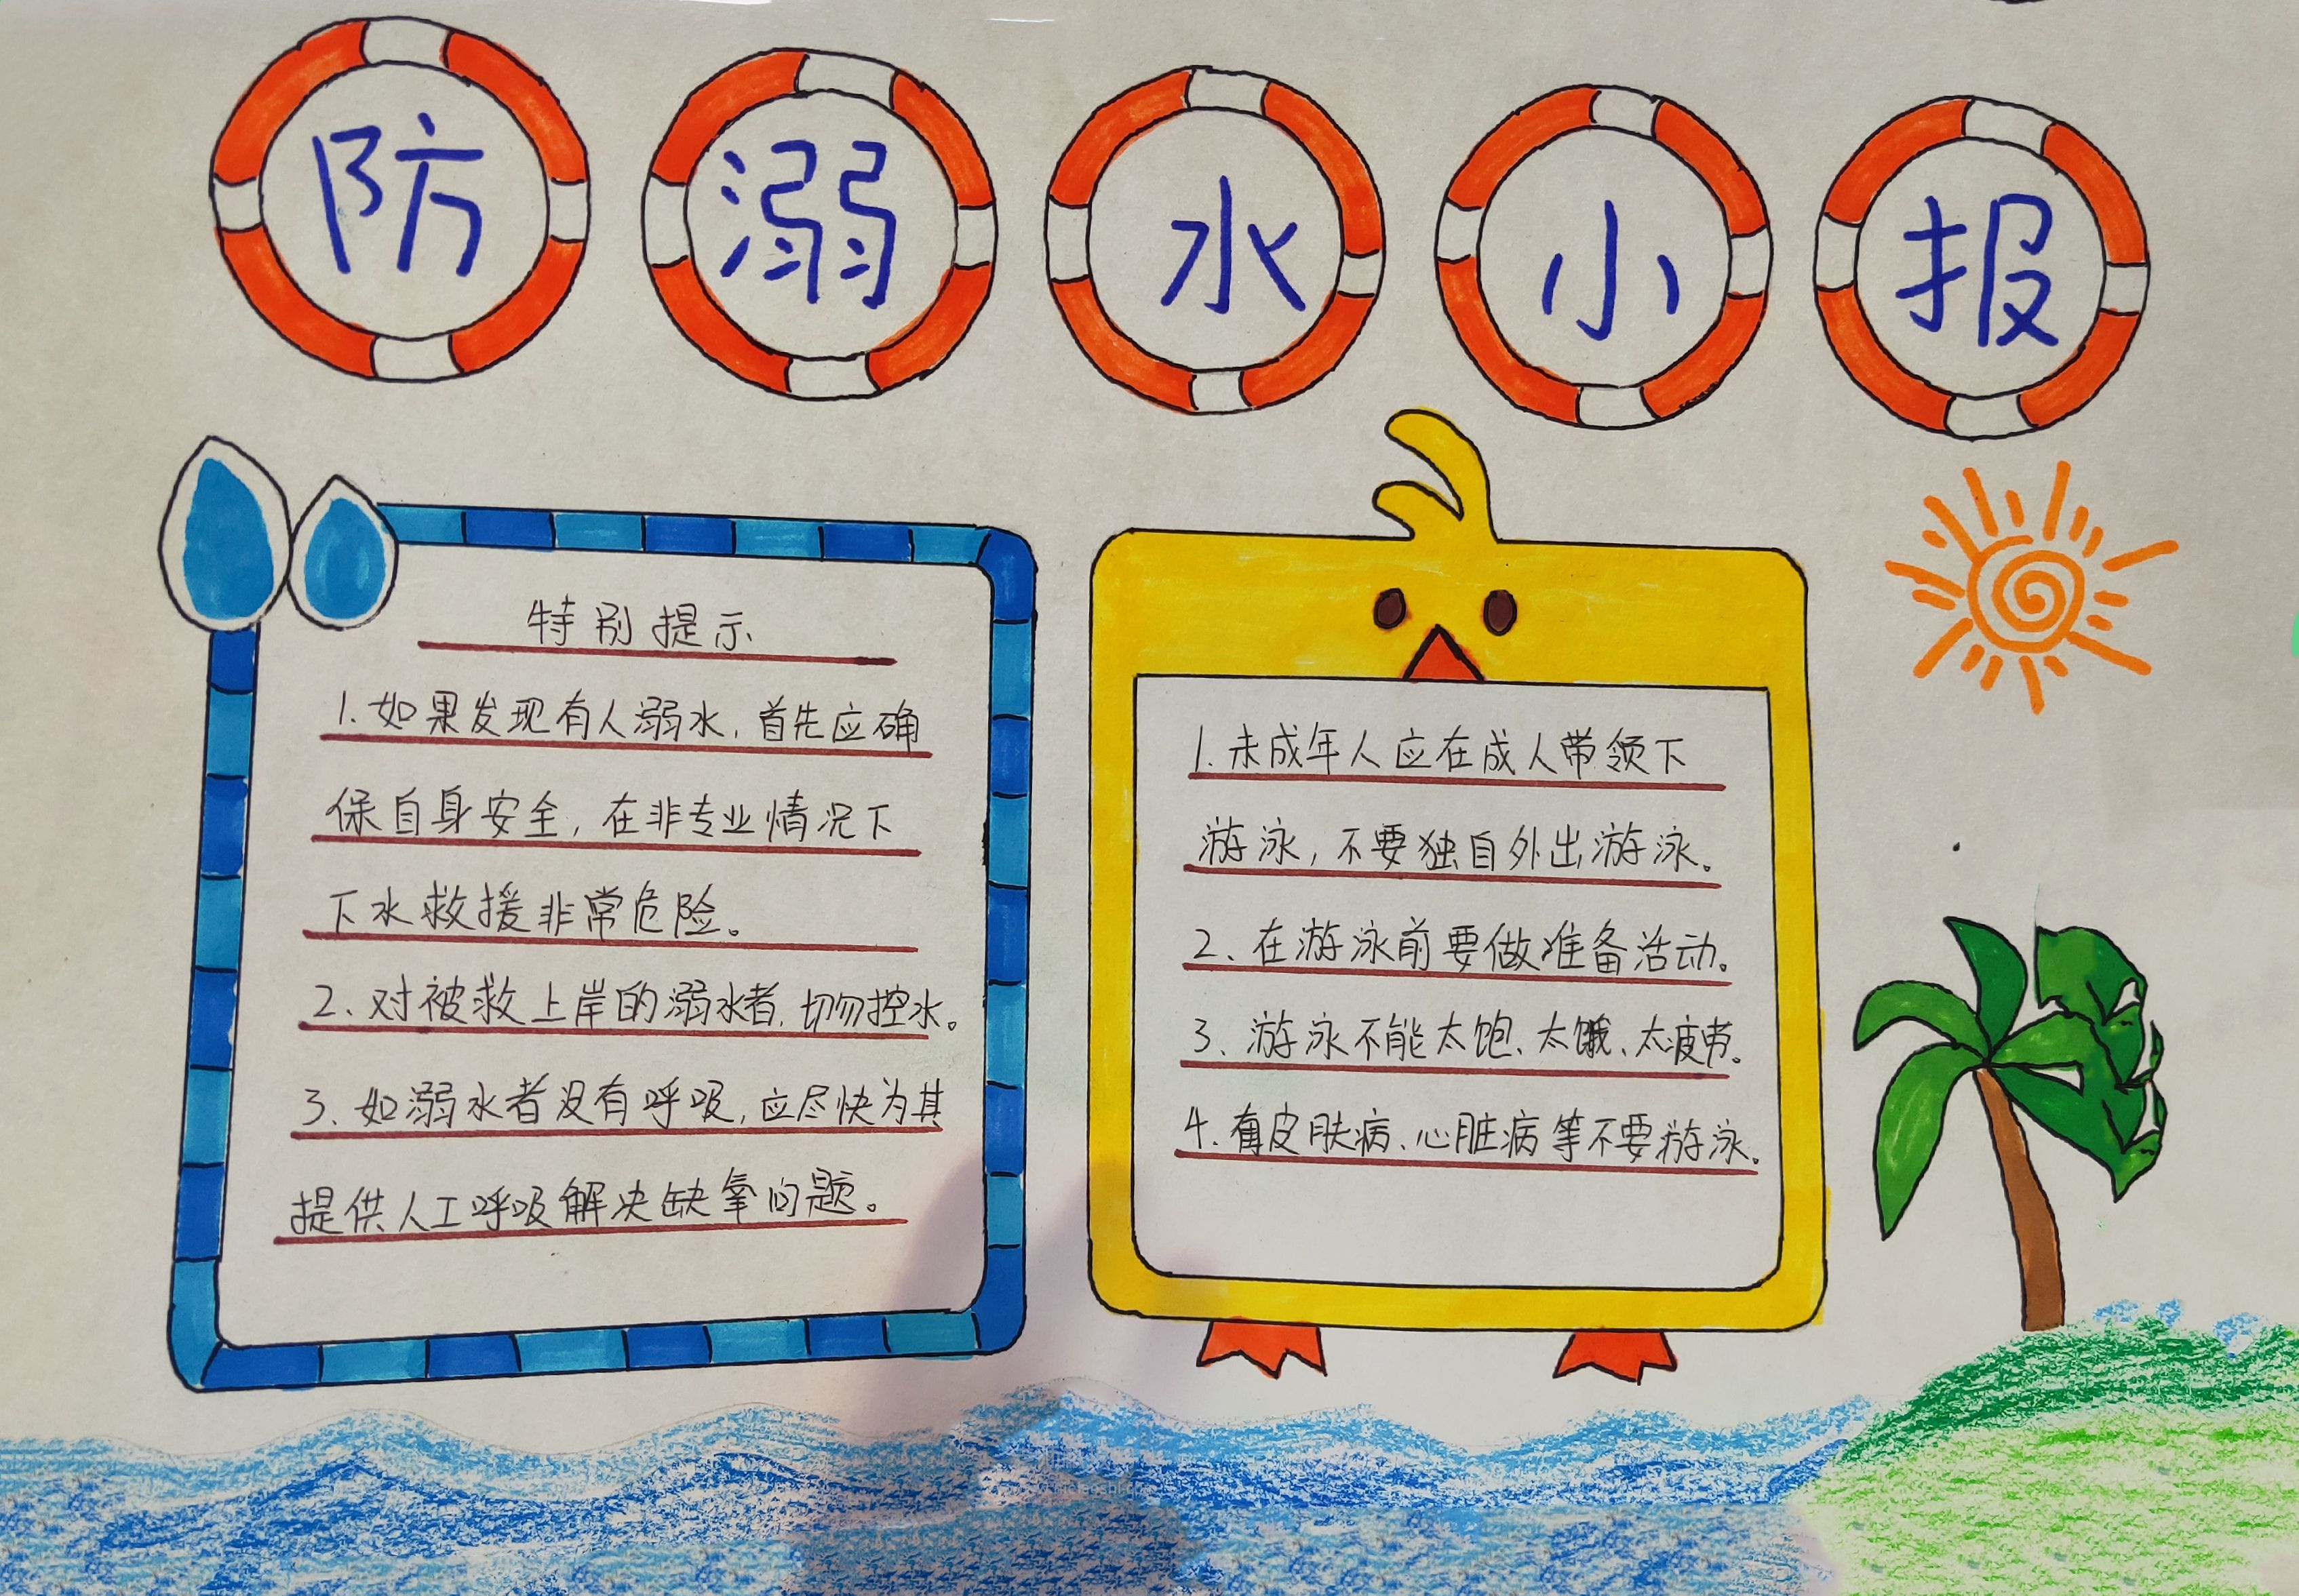 防溺水小报
特别提示
1.如果发现有人溺水,首先应确
保自身安全,在非专业情况下
下水救援非常危险。
2、对被救上岸的溺水者,切勿控水。
3、如溺水者没有呼吸,应尽快为其
提供人工呼吸解决缺氧问题。
1.未成年人应在成人带领下
游泳,不要独自外出游泳。
2、在游泳前要做准备活动。
3、游泳不能太饱、太饿、太疲劳。
4.有皮肤病、心脏病等不要游泳。